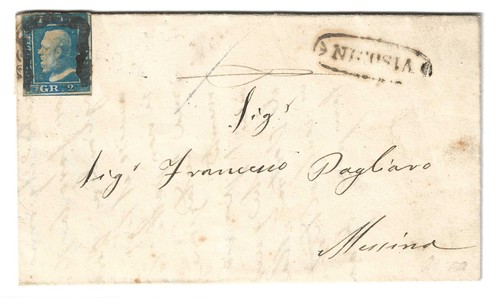 GR. 2
NICOSIA
Sig.r
Sig.r Francesco Pagliaro
Messina